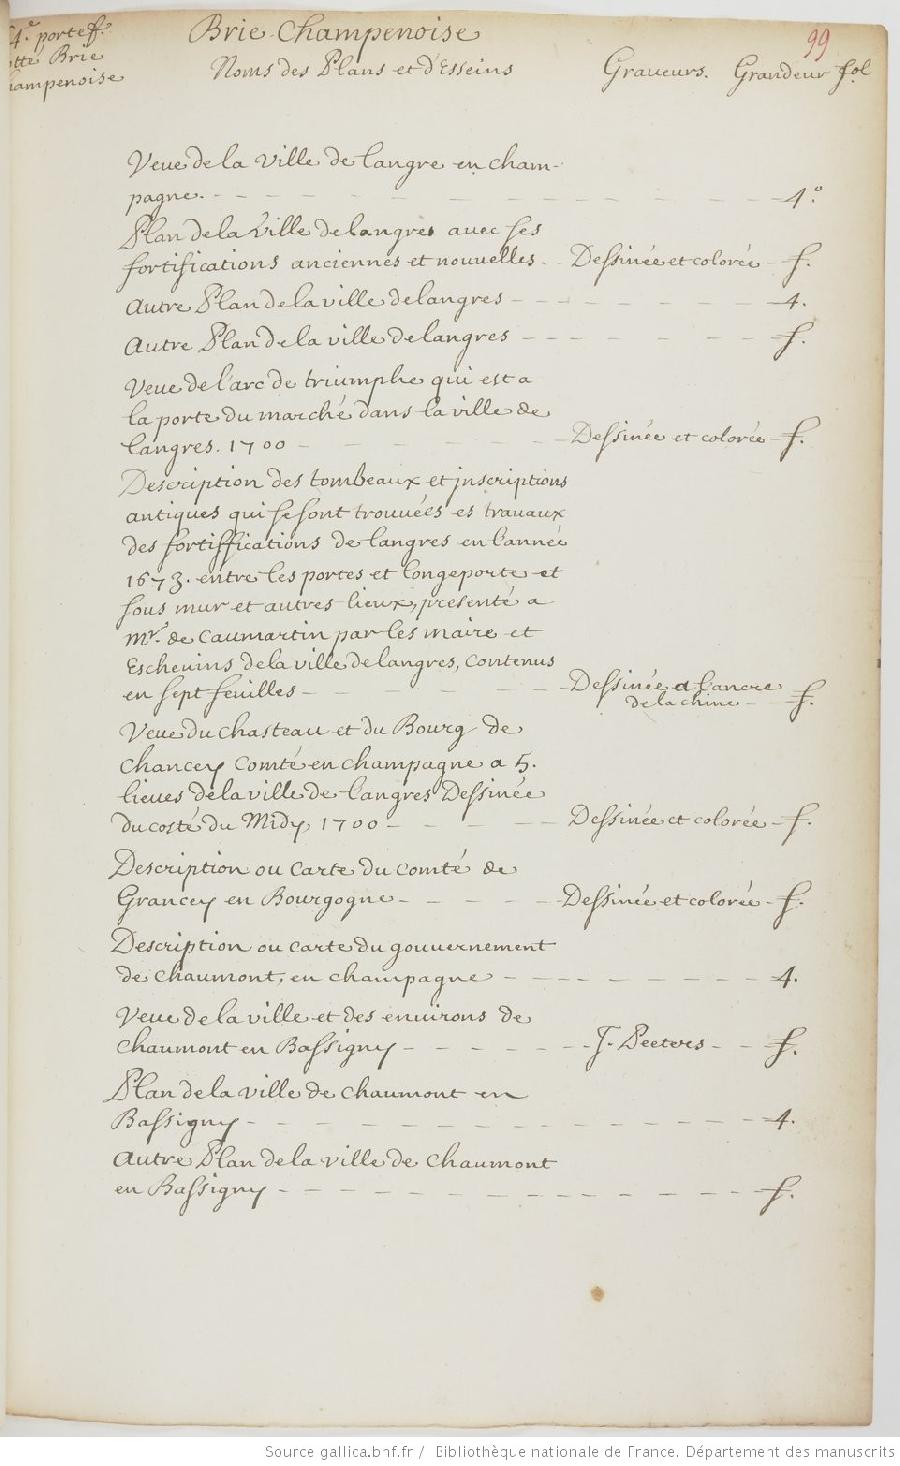 4.e portef.
Brie
Brie Champenoise
99
Noms des Plans et d'Esseins Graveurs. Grandeur fol
Veue de la Ville de Langre en Cham-
pagne. 4.o
Plan de la Ville de Langres avec ses
fortifications anciennes et nouvelles Dessinée et colorée f.
Autre Plan de la ville de Langres 4.
Autre Plan de la ville de Langres f.
Veue de l'arc de triumphe qui est a
la porte du marché dans la ville de
Langres. 1700 Dessinée et colorée f.
Description des tombeaux et jnscriptions
antiques qui se sont trouuées es trauaux
des fortiffications de Langres en l'année
1673. entre les portes et longeporte et
sous mur et autres lieux, presenté a
Mr. de Caumartin par les maire et
Escheuins de la ville de Langres, contenus
en sept feuilles Dessinée a l'ancre
de la chine f.
Veue du Chasteau et du Bourg de
Chancey Comté en champagne a 5.
lieues de la ville de Langres Dessinée
du costé du Midy 1700 Dessinée et colorée f.
Description ou carte du Comté de
Grancey en Bourgogne Dessinée et colorée f.
Description ou carte du gouuernement
de Chaumont, en champagne 4.
Veue de la ville et des enuirons de
Chaumont en Bassigny J. Peeters f.
Plan de la ville de Chaumont en
Bassigny 4.
Autre Plan de la ville de Chaumont
en Bassigny f.
Source gallica.bnf.fr / Bibliothèque nationale de France. Département des manuscrits